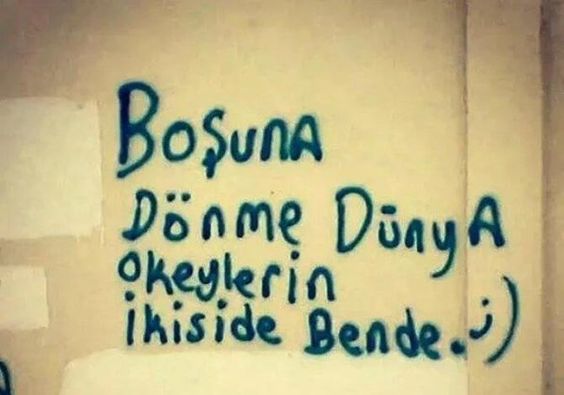 BoşunA
Dönme DünyA
okeylerin
ikiside Bende.;)